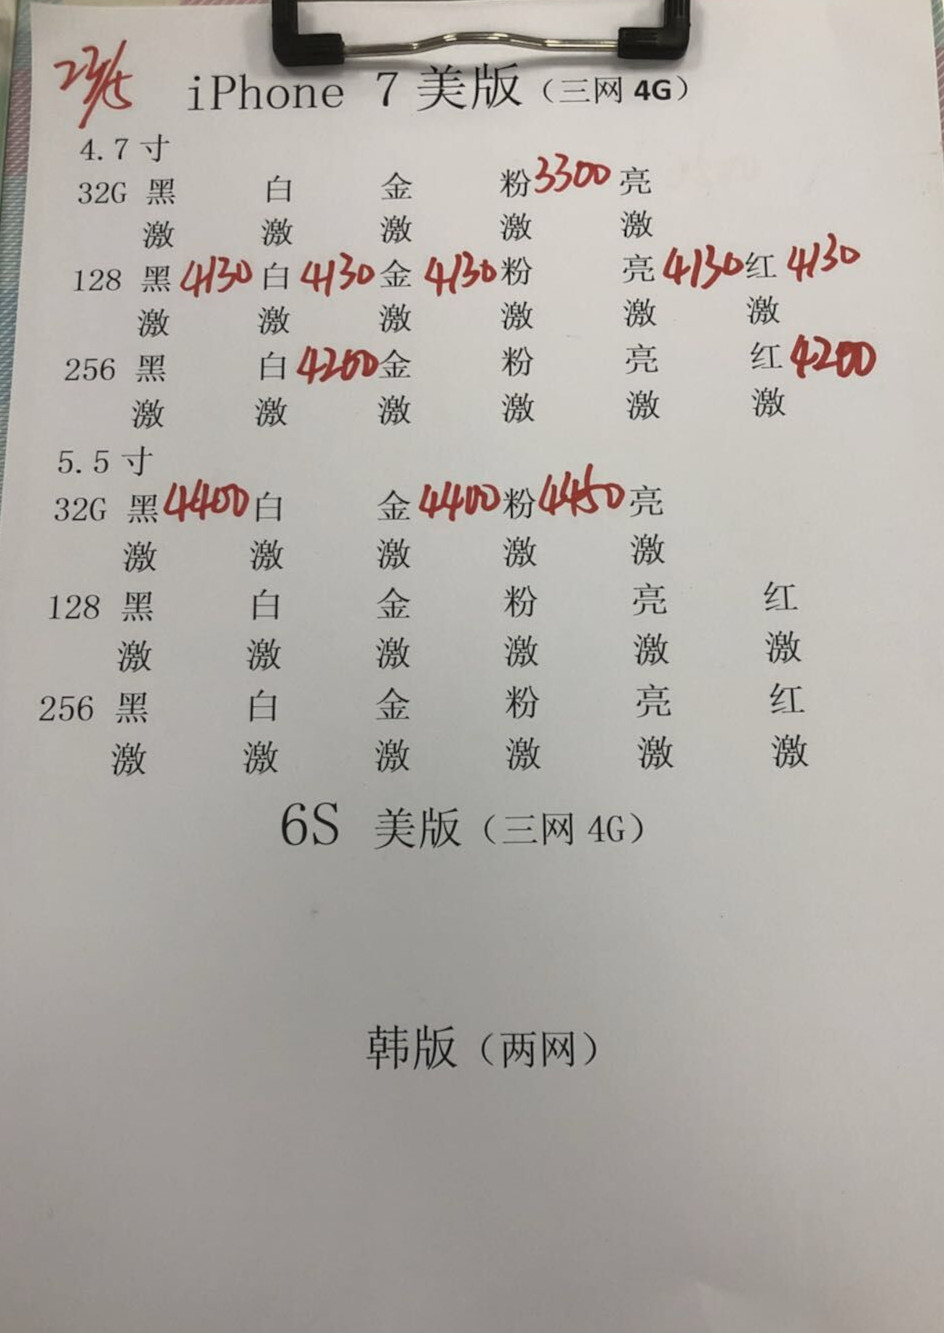 23/5
iPhone 7 美版（三网 4G）
4.7 寸
32G 黑 白 金 粉 3300 亮
激 激 激 激 激
128 黑 4130 白 4130 金 4130 粉 亮 4130 红 4130
激 激 激 激 激 激
256 黑 白 4200 金 粉 亮 红 4200
激 激 激 激 激 激
5.5 寸
32G 黑 4400 白 金 4400 粉 4450 亮
激 激 激 激 激
128 黑 白 金 粉 亮 红
激 激 激 激 激 激
256 黑 白 金 粉 亮 红
激 激 激 激 激 激
6S 美版（三网 4G）
韩版（两网）